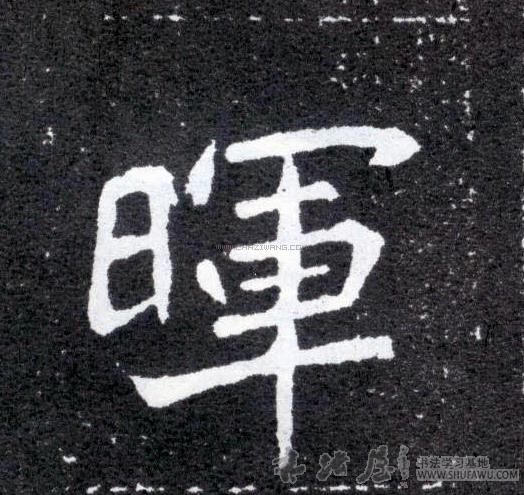 暉
WWW.CHAZIWANG.COM
书法学习基地
WWW.SHUFAWU.COM